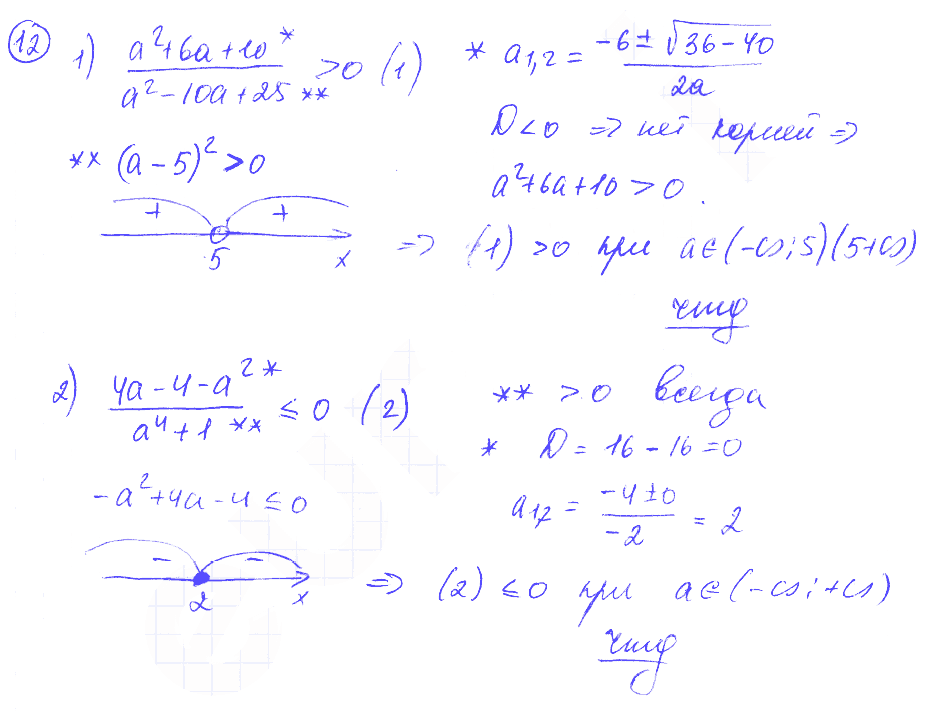 12
1) (a²+6a+10 *)/(a²-10a+25 **) >0 (1)
* a₁,₂ = (-6±√(36-40))/(2a)
D<0 => нет корней =>
** (a-5)²>0
a²+6a+10>0.
+ +
5 x
=> (1) >0 при a∈(-∞;5)(5+∞)
чтд
2) (4a-4-a² *)/(a⁴+1 **) ≤ 0 (2)
** >0 всегда
* D = 16-16=0
-a²+4a-4≤0
a₁,₂ = (-4±0)/(-2) = 2
- -
2 x
=> (2) ≤0 при a∈(-∞;+∞)
чтд